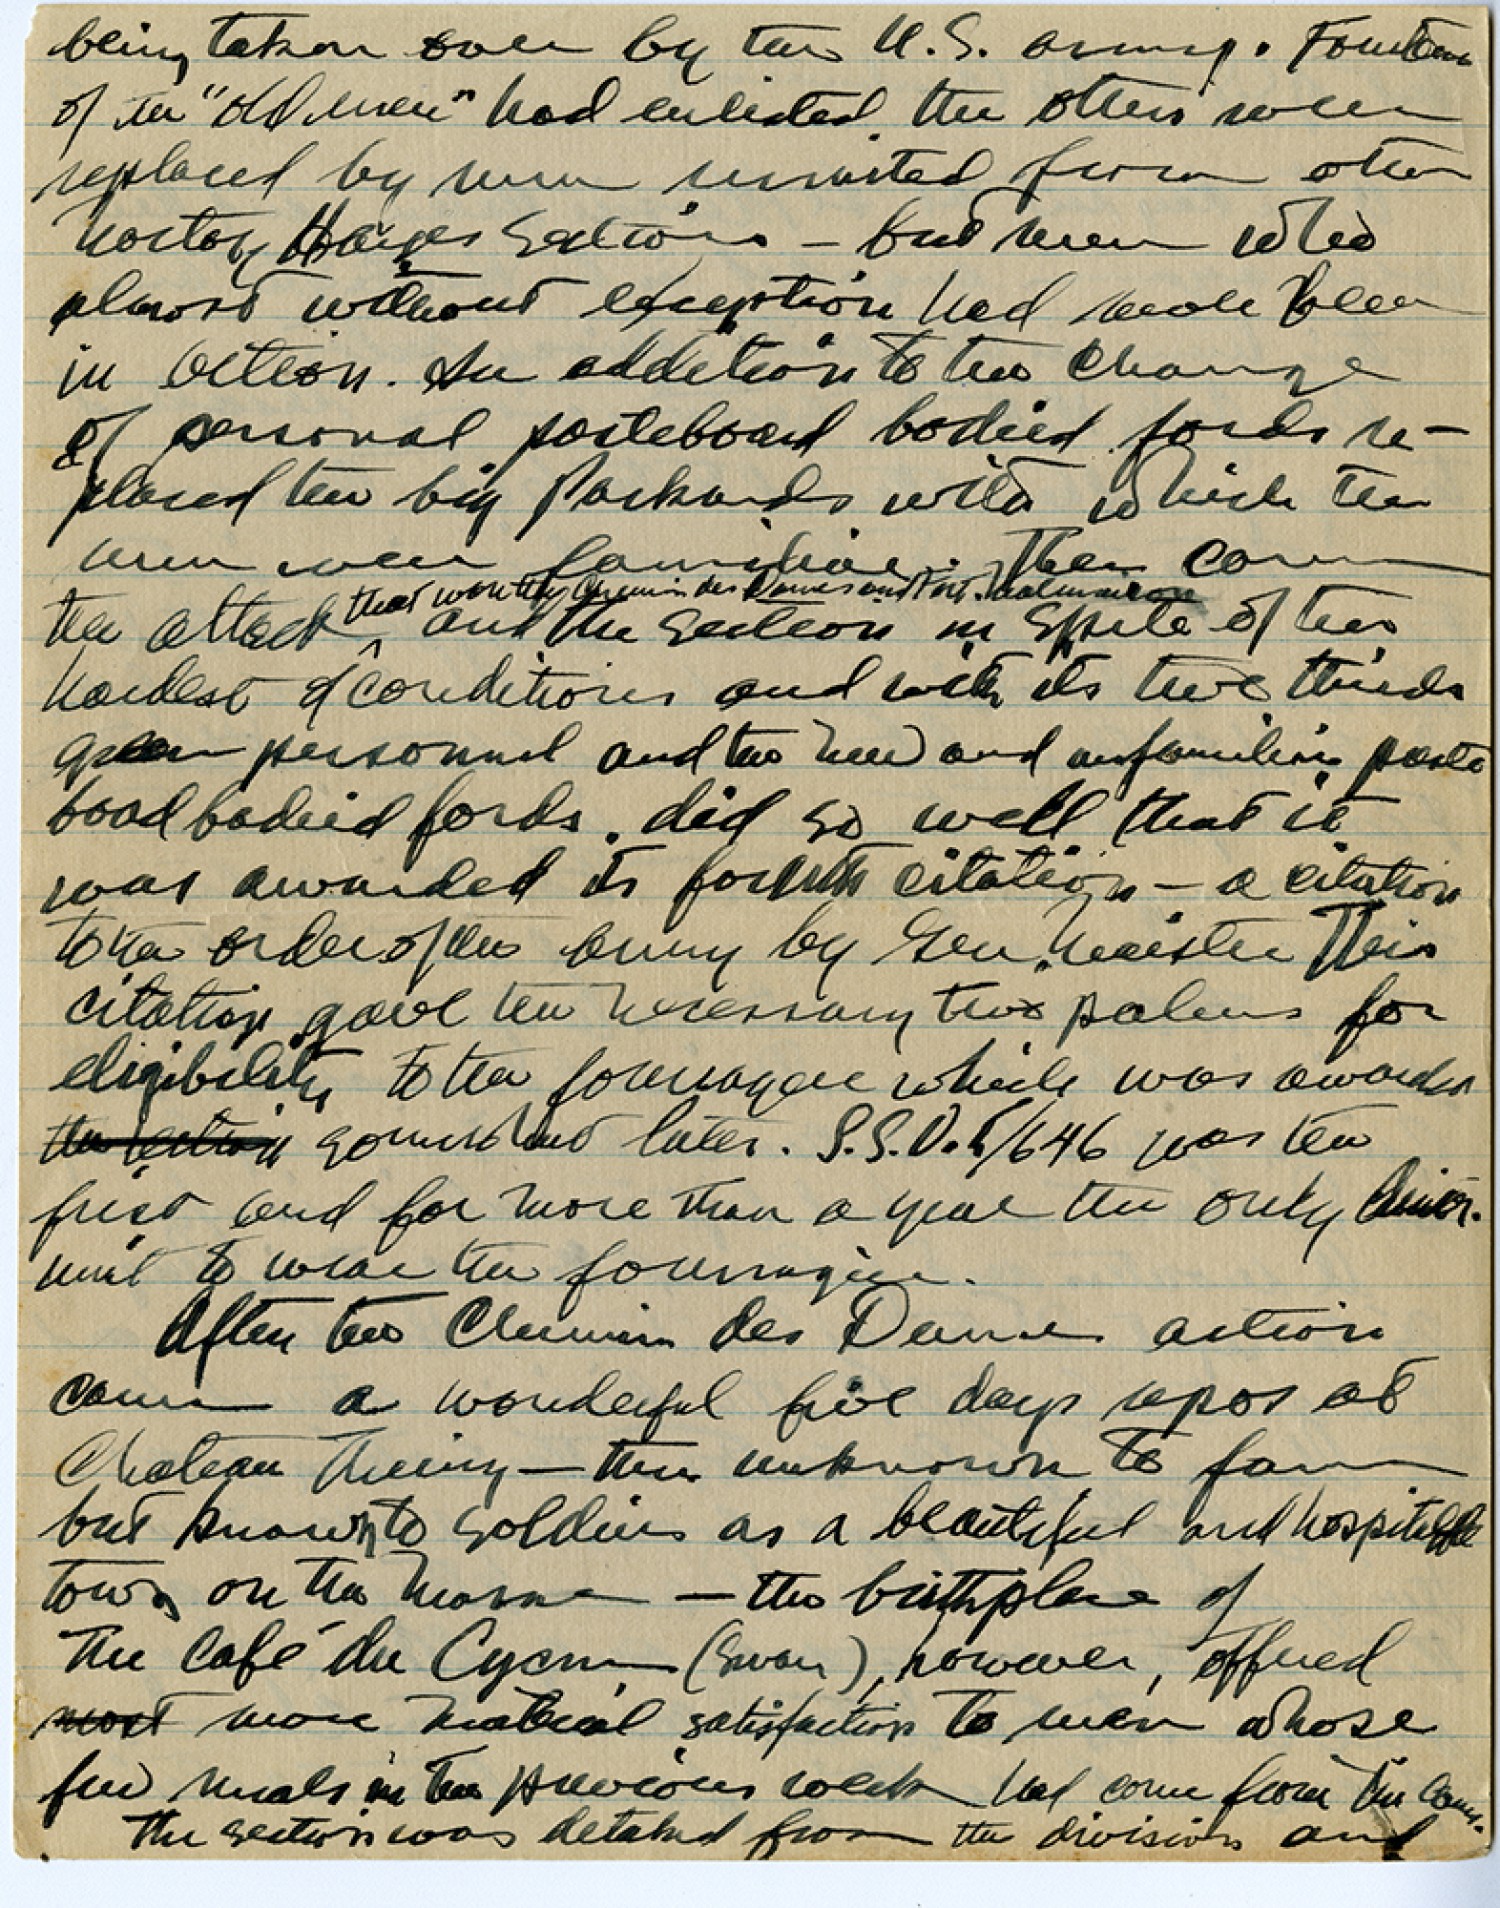 being taken over by the U.S. army. Fourteen
of the "old men" had enlisted the others were
replaced by men recruited from other
Norton Harjes Sections — but men who
almost without exception had never been
in action. In addition to the change
of personal pasteboard bodied fords re-
placed the big Packards with which the
men were familiar. Then came
that won the Chemin des Dames and Fort Malmaison
the attack ^ and the section in spite of the
hardest of conditions and with its two thirds
green personnel and the new and unfamiliar paste
board bodied fords, did so well that it
was awarded its fourth citation — a citation
to the order of the army by Gen. Maistre This
citation gave the necessary two palms for
eligibility to the fourragere which was awarded
the section somewhat later. S.S.U. 5/646 was the
first and for more than a year the only Amer.
unit to wear the fourragere.
After the Chemin des Dames action
came a wonderful five days repos at
Chateau Thierry — then unknown to fame
but known to soldiers as a beautiful and hospitable
town on the Marne — the birthplace of
The Café du Cygne (Swan), however, offered
most more material satisfaction to men whose
few meals in the previous week had come from the
The section was detached from the division and